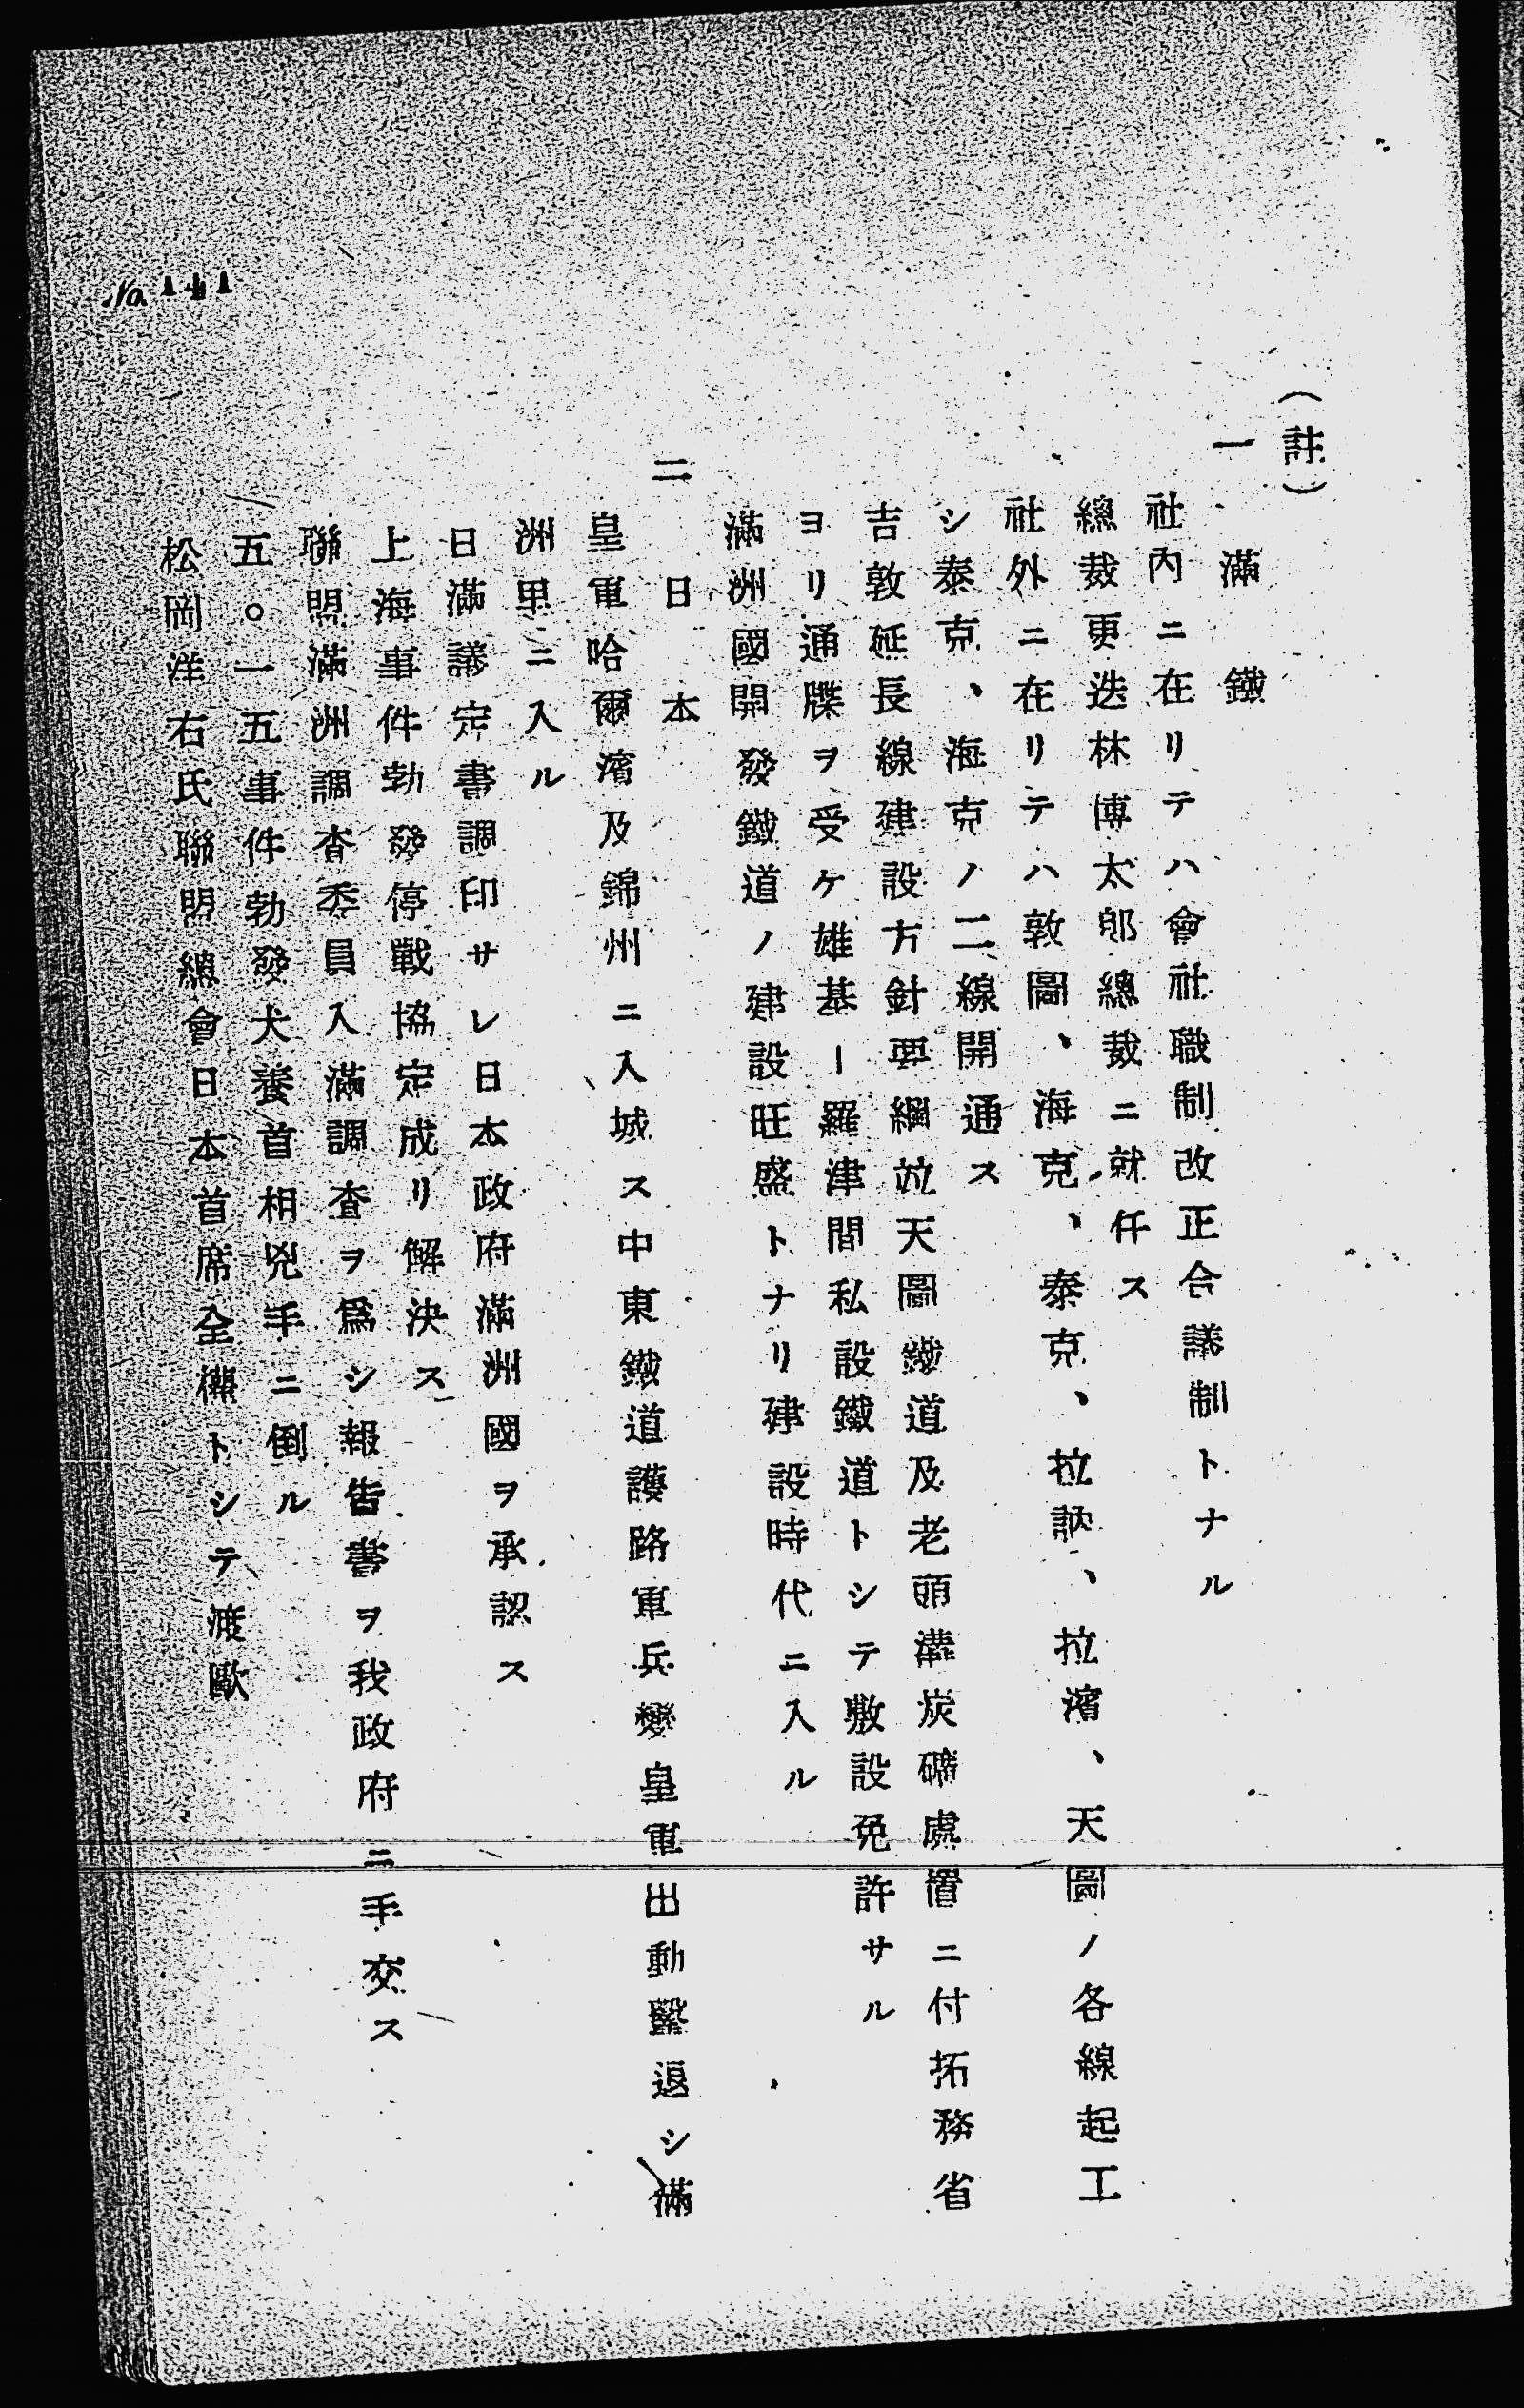 (註)
一、滿鐵
社內ニ在リテハ會社職制改正合議制トナル
總裁更迭林博太郎總裁ニ就任ス
社外ニ在リテハ敦圖、海克、泰克、拉訥、拉濱、天圖ノ各線起工
シ泰克、海克ノ二線開通ス
吉敦延長線建設方針要綱竝天圖鐵道及老頭溝炭礦處置ニ付拓務省
ヨリ通牒ヲ受ケ雄基ー羅津間私設鐵道トシテ敷設免許サル
滿洲國開發鐵道ノ建設旺盛トナリ建設時代ニ入ル
二日本
皇軍哈爾濱及錦州ニ入城ス中東鐵道護路軍兵變皇軍出動擊退シ滿
洲里ニ入ル
日滿議定書調印サレ日本政府滿洲國ヲ承認ス
上海事件勃發停戰協定成リ解決ス
聯盟滿洲調査委員入滿調査ヲ爲シ報告書ヲ我政府ニ手交ス
五。一五事件勃發犬養首相兇手ニ倒ル
松岡洋右氏聯盟總會日本首席全權トシテ渡歐
No.141